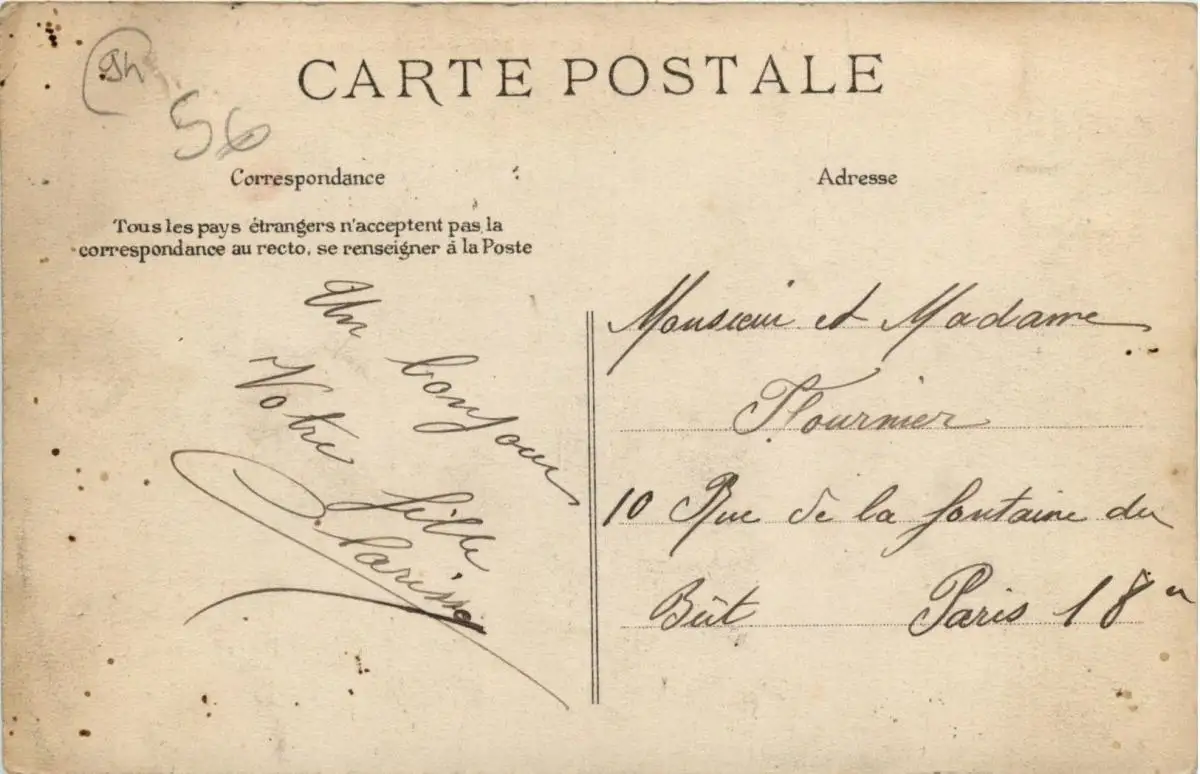 CARTE POSTALE
56
Correspondance
Tous les pays étrangers n'acceptent pas la
correspondance au recto, se renseigner à la Poste
Un bonjour
Votre fille
Clarisse
Adresse
Monsieur et Madame
Flournier
10 Rue de la fontaine du
Bût Paris 18e